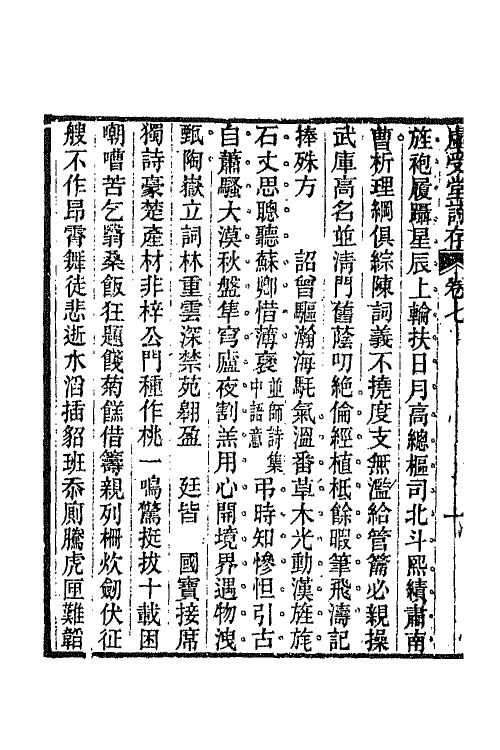 虛受堂詩存 卷七 十
旌袍履躡星辰上輪扶日月高總樞司北斗熙績肅南
曹析理綱俱綜陳詞義不撓度支無濫給管籥必親操
武庫高名並清門舊蔭叨絶倫經植柢餘暇筆飛濤記
捧殊方 詔曾驅瀚海馲氣溫番草木光動漢旌旄
石丈思聰聽蘇卿惜薄褒並師詩集中語意弔時知慘怛引古
自蕭騷大漠秋盤隼穹廬夜割羔用心開境界遇物洩
甄陶嶽立詞林重雲深禁苑翱盈 廷皆 國寶接席
獨詩豪楚產材非梓公門種作桃一鳴驚挺拔十載困
嘲嘈苦乞翳桑飯狂題餞菊餻借籌親列柵炊劒伏征
艘不作昂霄舞徒悲逝水滔插貂班忝廁騰虎匣難韜